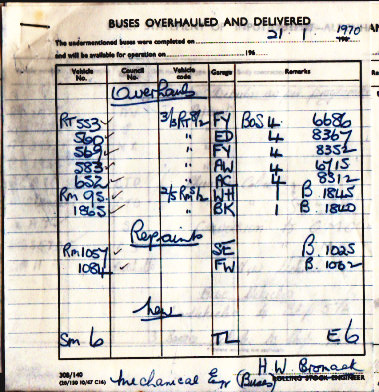 BUSES OVERHAULED AND DELIVERED
The undermentioned buses were completed on 21 . 1 1970
and will be available for operation on 196
Vehicle No. Council No. Vehicle code Garage Remarks
Overhauls
RT 553 ✓ FY BoS 4 6686
560 ✓ " ED 4 8367
569 ✓ " FY 4 8352
583 ✓ " AW 4 6715
652 ✓ " AC 4 8312
Rm 95 ✓ WH 1 B. 1845
1865 ✓ " BK 1 B. 1840
Repaints
Rm 1057 ✓ SE B. 1025
1084 ✓ FW B. 1062
New
Sm 6 TL E6
H.W. Bronack
308/140 Mechanical Eng (Buses) ROLLING STOCK ENGINEER